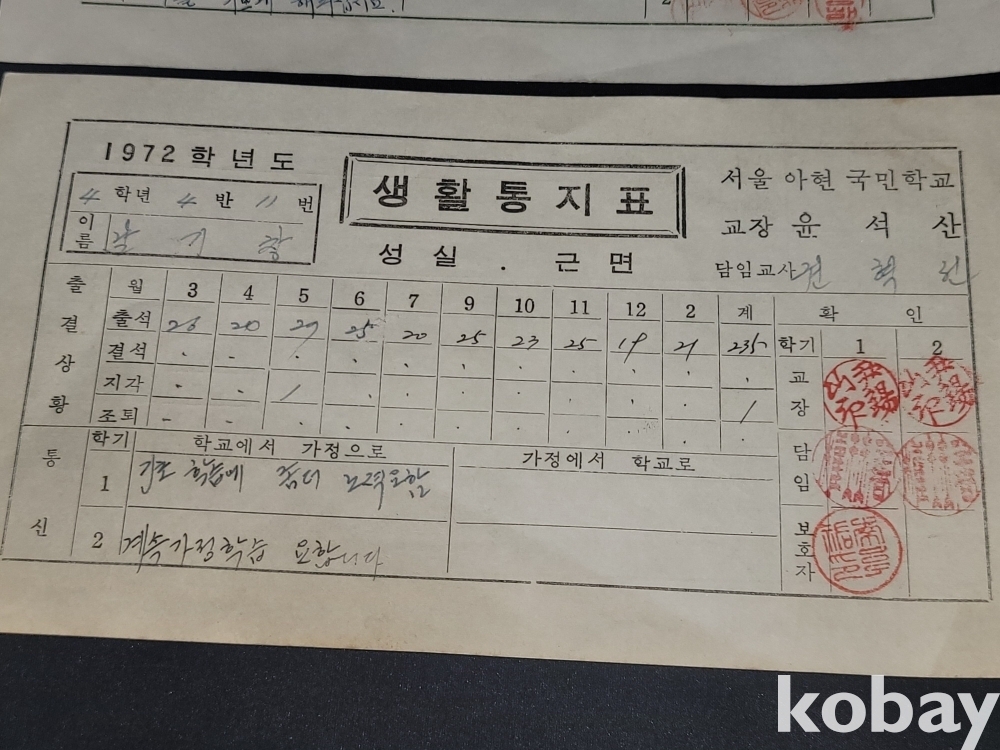 1972학년도
4 학년 4 반 11 번
이름
생활통지표
성실 . 근면
서울 아현 국민학교
교장 윤 석 산
담임교사
출결상황
월 3 4 5 6 7 9 10 11 12 2 계
출석 26 20 27 25 20 25 23 25 19 21 235
결석 . - . . . . . . . . .
지각 . . 1 . . . . . . .
조퇴 - - . . . . . . . 1
확인
학기 1 2
교장
담임
보호자
통신
학기 학교에서 가정으로 가정에서 학교로
1 기초 학습에 좀더 노력요함
2 계속가정학습 요합니다
kobay